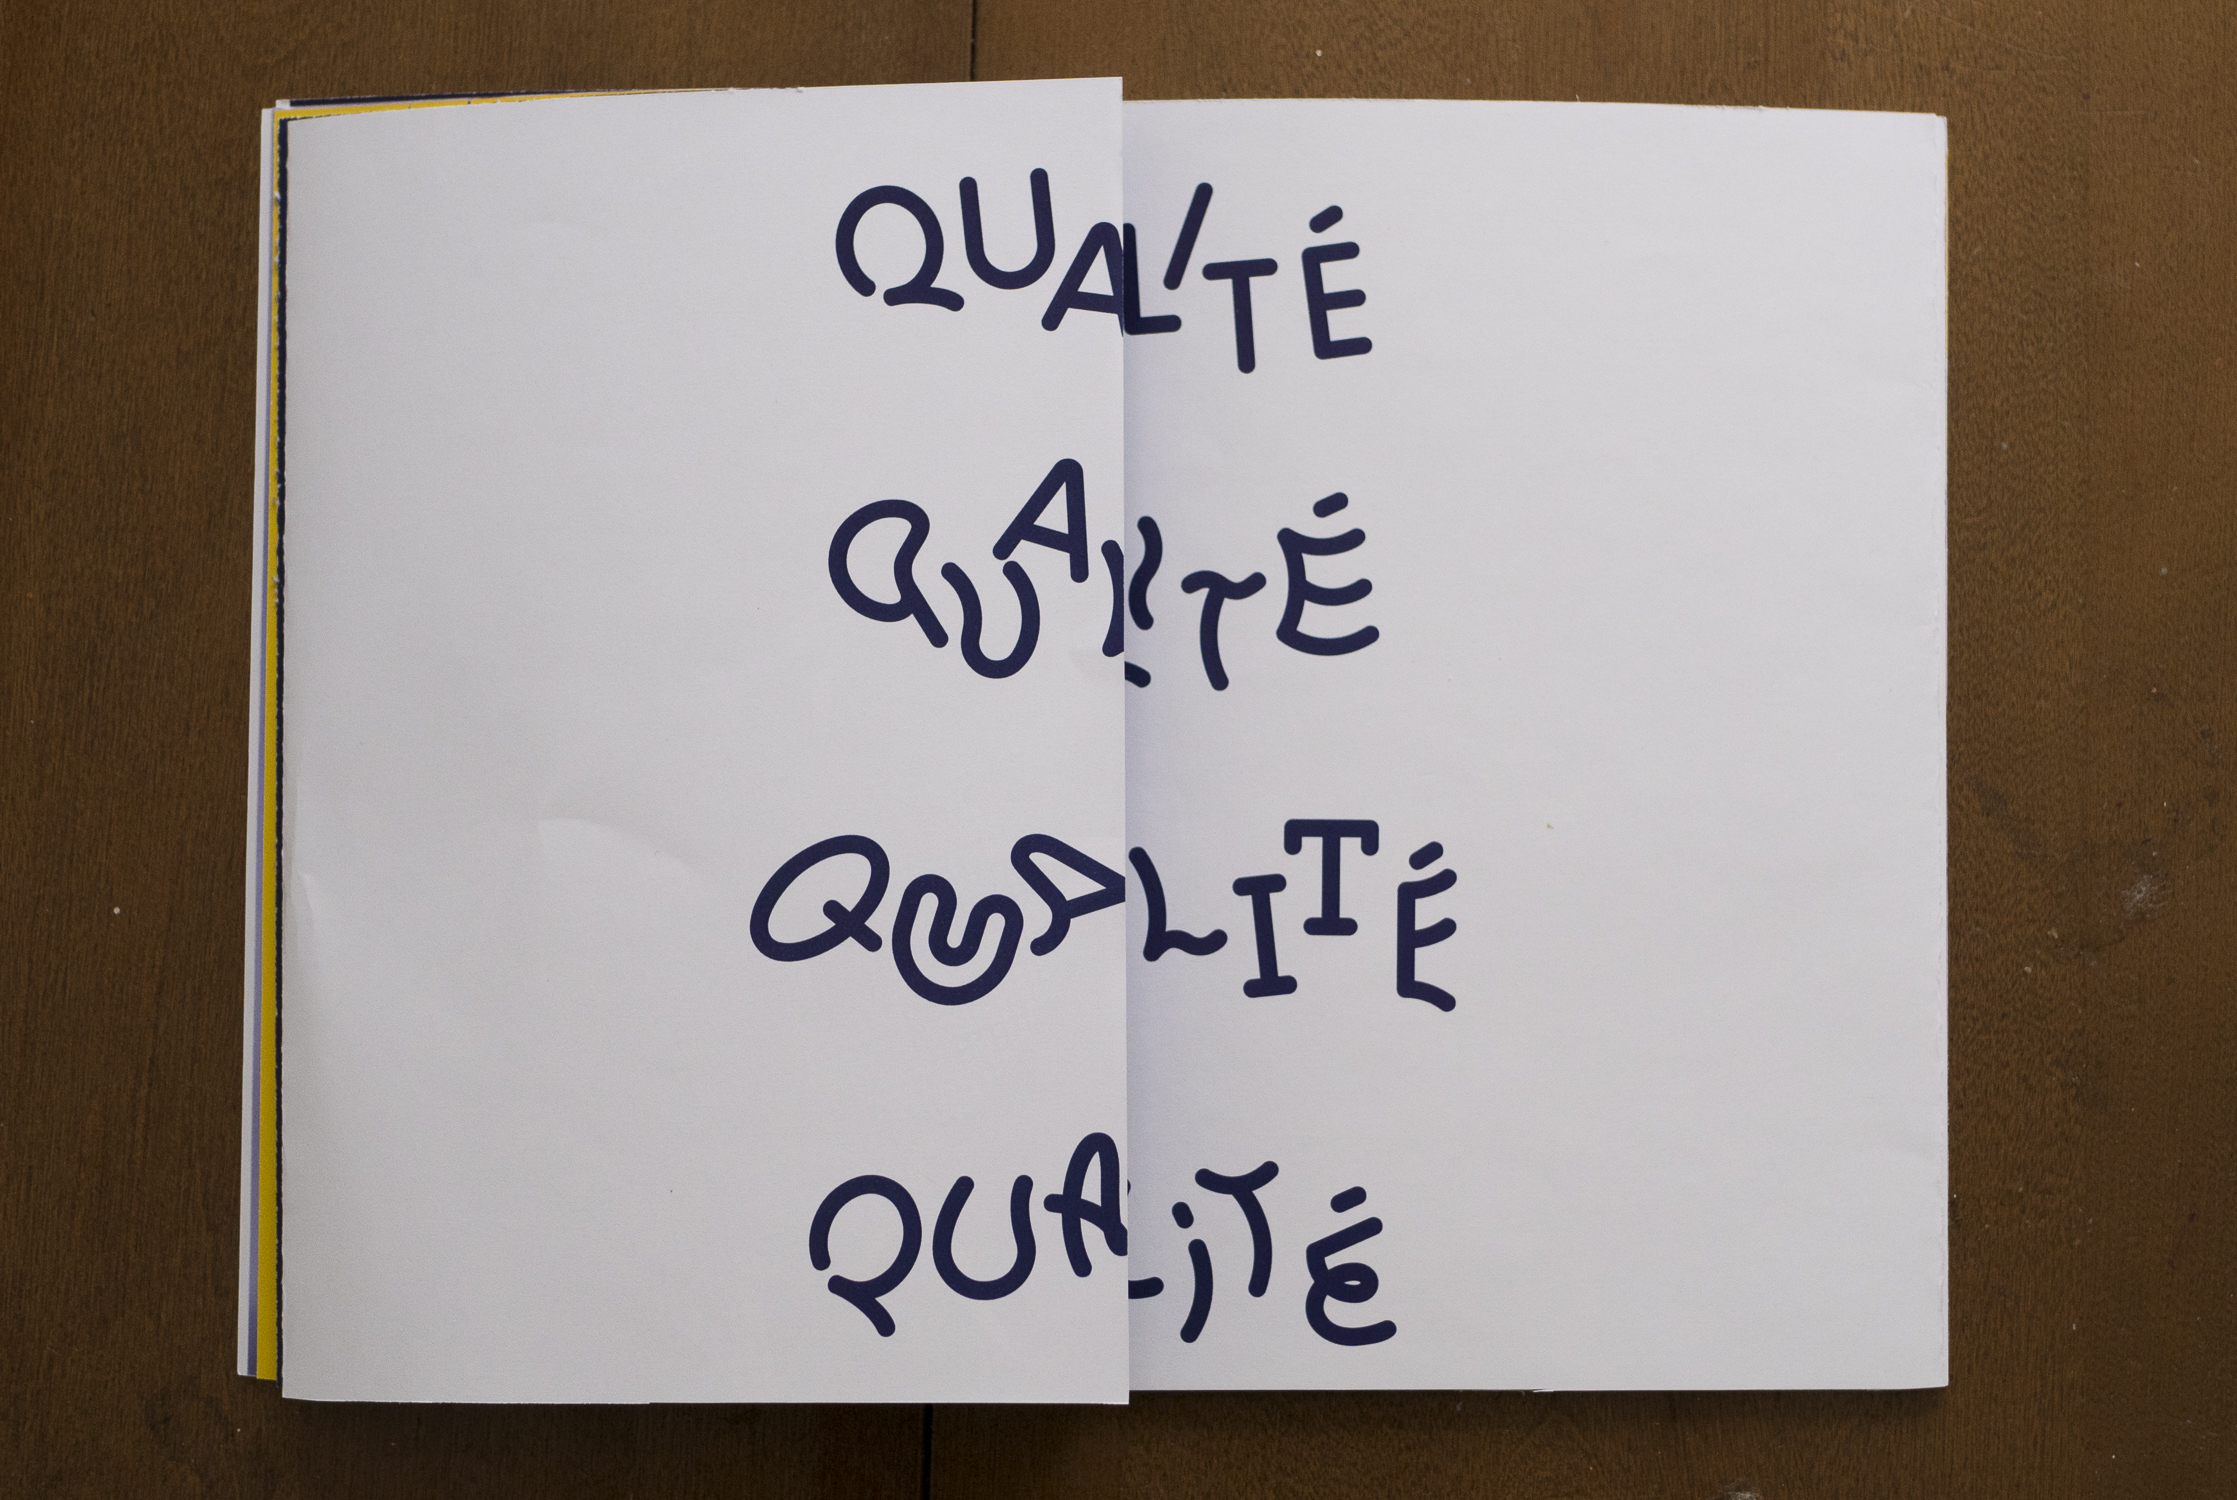 QUALITÉ
QUALITÉ
QUALITÉ
QUALiTÉ